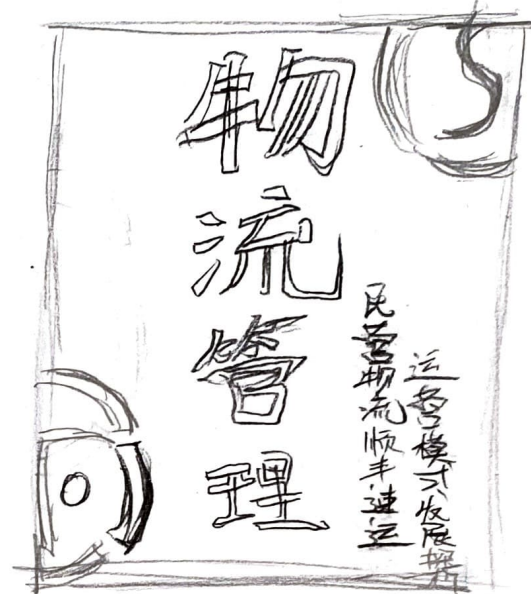 物流管理
民营物流顺丰速运
运营模式发展探析